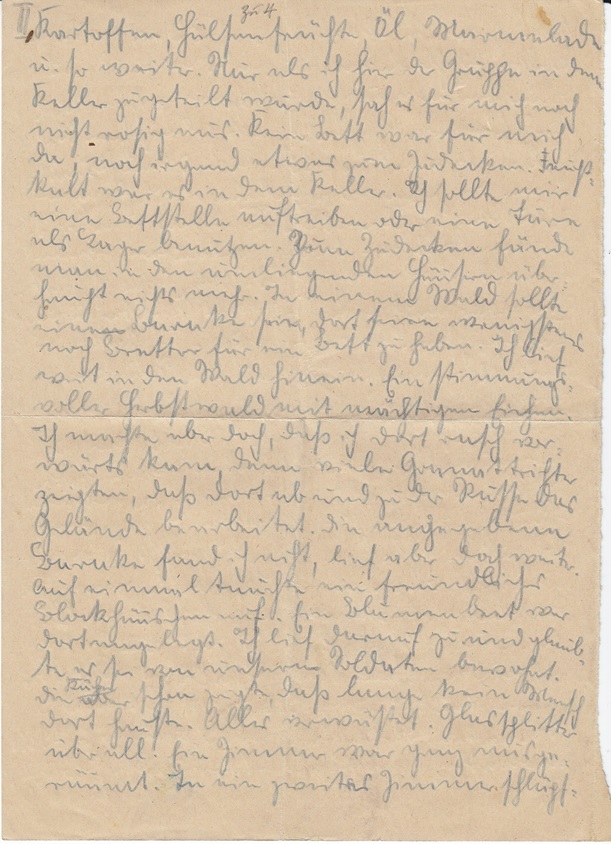 II zu 4
Kartoffen, Hülsenfrüchte, Öl, Marmelade
u. so weiter. Nur als ich hier der Gruppe in dem
Keller zugeteilt wurde, sah es für mich noch
nicht rosig aus. Kein Bett war für mich
da, noch irgend etwas zum Zudecken. Feucht-
kalt war es in dem Keller. Ich sollte mir
eine Bettstelle auftreiben oder eine Türe
als Lager benutzen. Zum Zudecken fände
man in den umliegenden Häusern über-
haupt nichts mehr. In einem Wald sollte
eine Baracke sein, dort seien wenigstens
noch Bretter für ein Bett zu haben. Ich lief
weit in den Wald hinein. Ein stimmungs-
voller Herbstwald mit mächtigen Eichen.
Ich machte aber doch, daß ich dort rasch vor-
wärts kam, denn viele Granattrichter
zeigten, daß dort ab und zu der Russe das
Gelände bearbeitet. Die angegebene
Baracke fand ich nicht, lief aber doch weiter.
Auf einmal tauchte ein freundliches
Blockhäuschen auf. Ein Blumenbeet war
dort angelegt. Ich lief darauf zu und glaub-
te es sei von unseren Soldaten bewohnt.
Die Ruhe aber schon zeigte, daß lange kein Mensch
dort hauste. Alles verwüstet. Glassplitter
überall. Ein Zimmer war ganz ausge-
räumt. In ein zweites Zimmer schlüpf-